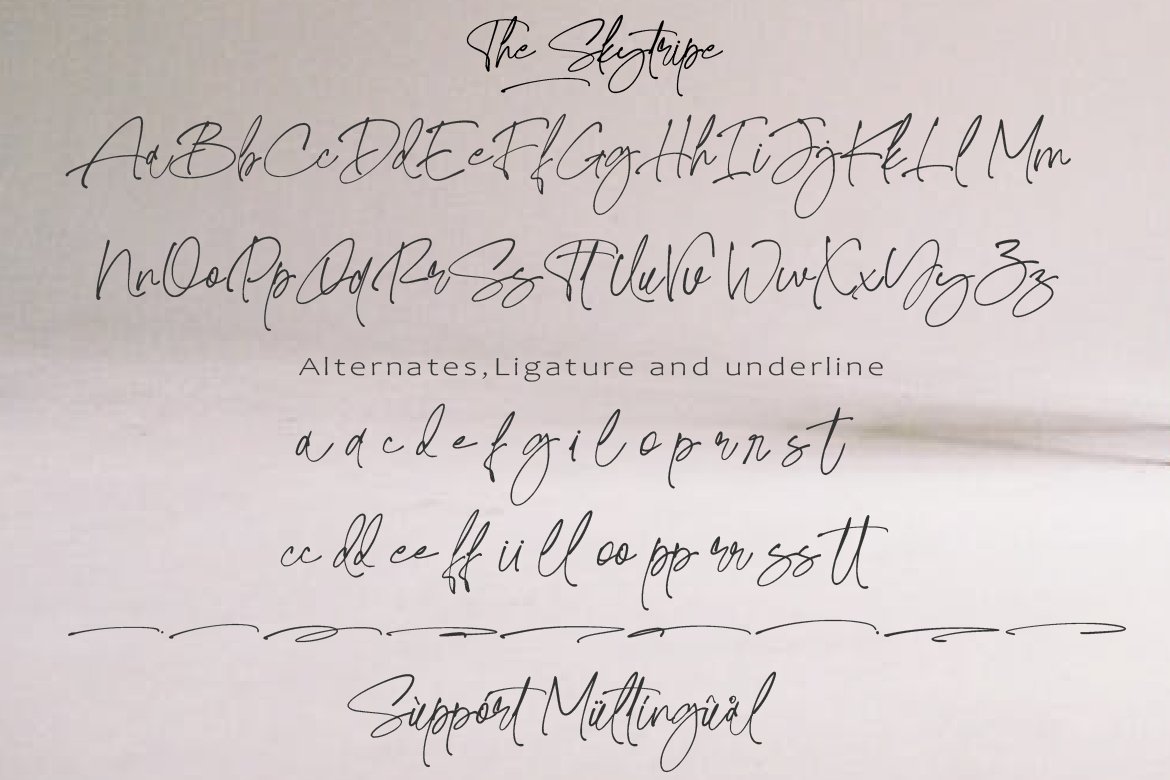 The Skytripe
Aa Bb Cc Dd Ee Ff Gg Hh Ii Jj Kk Ll Mm
Nn Oo Pp Qq Rr Ss Tt Uu Vv Ww Xx Yy Zz
Alternates,Ligature and underline
a a c d e f g i l o p r r s t
cc dd ee ff ii ll oo pp rr ss tt
Sùppórt Mültíngûål